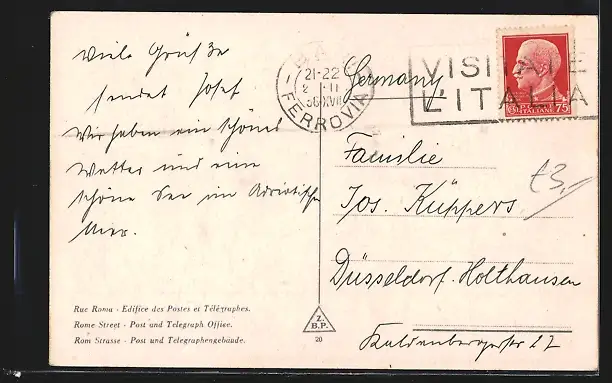 Viele Grüße
sendet Josef
Wir haben ein schönes
Wetter und eine
schöne See im Adriatischen
Meer.
Rue Roma - Edifice des Postes et Télégraphes.
Rome Street - Post and Telegraph Office.
Rom Strasse - Post und Telegraphengebäude.
21-22
FERROVIA
Z.
B.P.
20
Germany
VISITATE
L'ITALIA
75
Familie
Jos. Küppers
£3,-
Düsseldorf-Holthausen
27